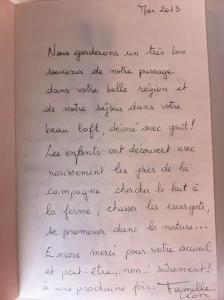 Mai 2013
Nous garderons un très bon
souvenir de notre passage
dans votre belle région et
de notre séjour dans votre
beau loft, décoré avec goût!
Les enfants ont découvert avec
ravissement les joies de la
campagne : chercher le lait à
la ferme, chasser les escargots,
se promener dans la nature...
Encore merci pour votre accueil
et peut-être... non.. sûrement!
à une prochaine fois. Famille